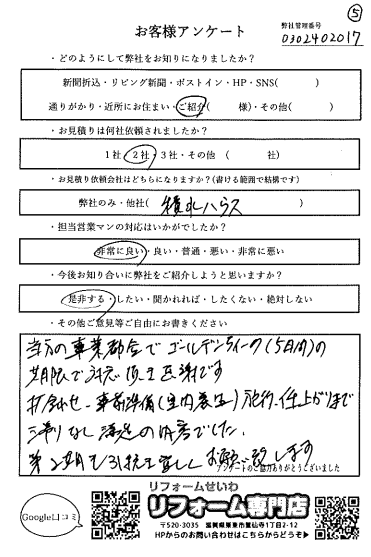 ⑤
お客様アンケート
弊社管理番号
0302402017
・どのようにして弊社をお知りになりましたか?
新聞折込・リビング新聞・ポストイン・HP・SNS( )
通りがかり・近所にお住まい・ご紹介( 様)・その他( )
・お見積りは何社依頼されましたか?
1社・2社・3社・その他 ( 社)
・お見積り依頼会社はどちらになりますか?(書ける範囲で結構です)
弊社のみ・他社( 積水ハウス )
・担当営業マンの対応はいかがでしたか?
非常に良い・良い・普通・悪い・非常に悪い
・今後お知り合いに弊社をご紹介しようと思いますか?
是非する・したい・聞かれれば・したくない・絶対しない
・その他ご意見等ご自由にお書きください
当方の事業都合でゴールデンウィーク(5日間)の
期限で対応頂き感謝です
打合わせ、事前準備(室内養生)施行、仕上がりまで
滞りなし満足の内容でした。
第2期も引続き宜しくお願い致します
アンケートのご協力ありがとうございました
Google口コミ
リフォームせいわ
リフォーム専門店
〒520-3035 滋賀県栗東市霊仙寺1丁目2-12
HPからのお問い合わせはこちらからどうぞ➤